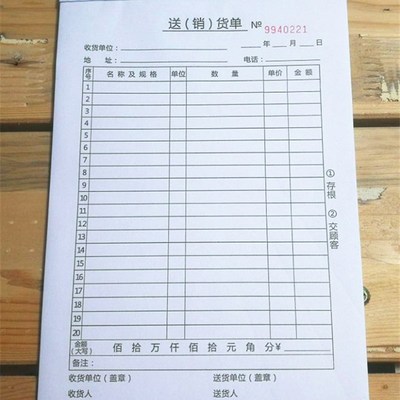 送（销）货单 № 9940221
收货单位： 年 月 日
地 址： 电话：
序号 名称及规格 单位 数 量 单价 金 额
1
2
3
4
5
6
7
8
9
10
11
12
13
14
15
16
17
18
19
20
①存根 ②交顾客
金额（大写） 佰 拾 万 仟 佰 拾 元 角 分￥
备注：
收货单位（盖章） 送货单位（盖章）
收货人 送货人